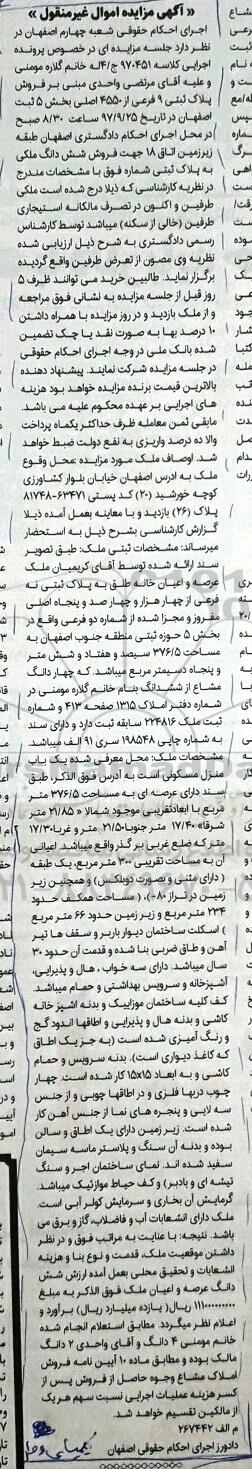 « آگهی مزایده اموال غیرمنقول »
اجرای احکام حقوقی شعبه چهارم اصفهان در
نظر دارد جلسه مزایده ای در خصوص پرونده
اجرایی کلاسه ۹۷۰۴۵۱ ج/۴له خانم گلاره مومنی
و علیه آقای مرتضی واحدی مبنی بر فروش
پلاک ثبتی ۹ فرعی از ۴۵۵۰ اصلی بخش ۵ ثبت
اصفهان در تاریخ ۹۷/۹/۲۵ ساعت ۸/۳۰ صبح
در محل اجرای احکام دادگستری اصفهان طبقه
زیرزمین اتاق ۱۸ جهت فروش شش دانگ ملکی
به پلاک ثبتی شماره فوق با مشخصات مندرج
در نظریه کارشناسی که ذیلا درج شده است ملکی
طرفین و اکنون در تصرف مالکانه استیجاری
طرفین (خالی از سکنه) میباشد توسط کارشناس
رسمی دادگستری به شرح ذیل ارزیابی شده
نظریه وی مصون از تعرض طرفین واقع گردیده
برگزار نماید. طالبین خرید می توانند ظرف ۵
روز قبل از جلسه مزایده به نشانی فوق مراجعه
و از ملک بازدید و در روز مزایده با همراه داشتن
۱۰ درصد بها به صورت نقد یا چک تضمین
شده بانک ملی در وجه اجرای احکام حقوقی
در جلسه مزایده شرکت نمایند. پیشنهاد دهنده
بالاترین قیمت برنده مزایده خواهد بود هزینه
های اجرایی بر عهده محکوم علیه می باشد.
مابقی ثمن معامله ظرف حداکثر یکماه پرداخت
والا ده درصد واریزی به نفع دولت ضبط خواهد
شد. اوصاف ملک مورد مزایده :محل وقوع
ملک به ادرس اصفهان خیابان بلوار کشاورزی
کوچه خورشید (۲۰) کد پستی ۶۳۴۷۱-۸۱۷۴۸
پلاک (۲۶) بازدید و با معاینه بعمل آمده ذیلا
گزارش کارشناسی بشرح ذیل به استحضار
میرساند: مشخصات ثبتی ملک: طبق تصویر
سند ارائه شده توسط آقای کریمیان ملک
عرصه و اعیان خانه طلق به پلاک ثبتی نه
فرعی از چهار هزار و چهار صد و پنجاه اصلی
مفروز و مجزا شده از شماره دو فرعی واقع در
بخش ۵ حوزه ثبتی منطقه جنوب اصفهان به
مساحت ۳۷۶/۵ سیصد و هفتاد و شش متر
و پنجاه دسیمتر مربع میباشد. که چهار دانگ
مشاع از ششدانگ بنام خانم گلاره مومنی در
شماره دفتر املاک ۱۳۱۵ صفحه ۴۱۳ و شماره
ثبت ملک ۲۲۴۸۱۶ سابقه ثبت دارد و دارای سند
به شماره چاپی ۱۹۸۵۴۸ سری ۹۱ الف میباشد.
مشخصات ملک: محل معرفی شده یک باب
منزل مسکونی است به آدرس فوق الذکر، طبق
سند دارای عرصه ای به مساحت ۳۷۶/۵ متر
مربع با ابعاد تقریبی موجود شمالا « ۲۱/۸۵ متر
شرقا» ۱۷/۴۰ متر جنوبا ۲۱/۵۰ متر و غربا ۱۷/۳۰
متر که ضلع غربی بر گذر واقع میباشد. اعیانی
آن به مساحت تقریبی ۳۰۰ متر مربع، یک طبقه
( دارای مثنی و بصورت دوبلکس) و همچنین زیر
زمین در تراز ۸۰-)، ( مساحت همکف حدود
۲۳۴ متر مربع و زیر زمین حدود ۶۶ متر مربع
) اسکلت ساختمان دیوار باربر و سقف ها تیر
آهن و طاق ضربی بنا شده و قدمت آن حدود ۳۰
سال میباشد. دارای سه خواب ، هال و پذیرایی،
آشپزخانه و سرویس بهداشتی و حمام میباشد.
کف کلیه ساختمان موزاییک و بدنه اشپز خانه
کاشی و بدنه هال و پذیرایی و اطاقها اندود گچ
و رنگ آمیزی شده است (به جز یک اطاق
که کاغذ دیواری است). بدنه سرویس و حمام
کاشی و به ابعاد ۱۵x۱۵ کار شده است. چهار
چوب دربها فلزی و در اطاقها چوبی و از جنس
سه لایی و پنجره های نما از جنس آهن کار
شده است. زیر زمین دارای یک اطاق و سالن
بوده و بدنه آن سنگ و پلاستر ماسه سیمان
سفید شده اند. نمای ساختمان اجر و سنگ
تیشه ای و بادبر) و کف حیاط موازئیک میباشد.
گرمایش آن بخاری و سرمایش کولر آبی است.
ملک دارای انشعابات آب و فاضلاب، گاز و برق می
باشد. نتیجه: با عنایت به مراتب فوق و در نظر
داشتن موقعیت ملک، قدمت و نوع بنا و هزینه
انشعابات و تحقیق محلی بعمل آمده ارزش شش
دانگ عرصه و اعیان ملک فوق الذکر به مبلغ
ریال( یازده میلیارد ریال) برآورد و
اعلام نظر میگردد. مطابق استعلام انجام شده
خانم مومنی ۴ دانگ و آقای واحدی ۲ دانگ
مالک بوده و مطابق ماده ۱۰ آیین نامه فروش
املاک مشاع وجوه حاصل از فروش پس از
کسر هزینه عملیات اجرایی نسبت سهم هر یک
از مالکین تقسیم خواهد شد.
م الف ۲۶۷۴۴۲
دادورز اجرای احکام حقوقی اصفهان